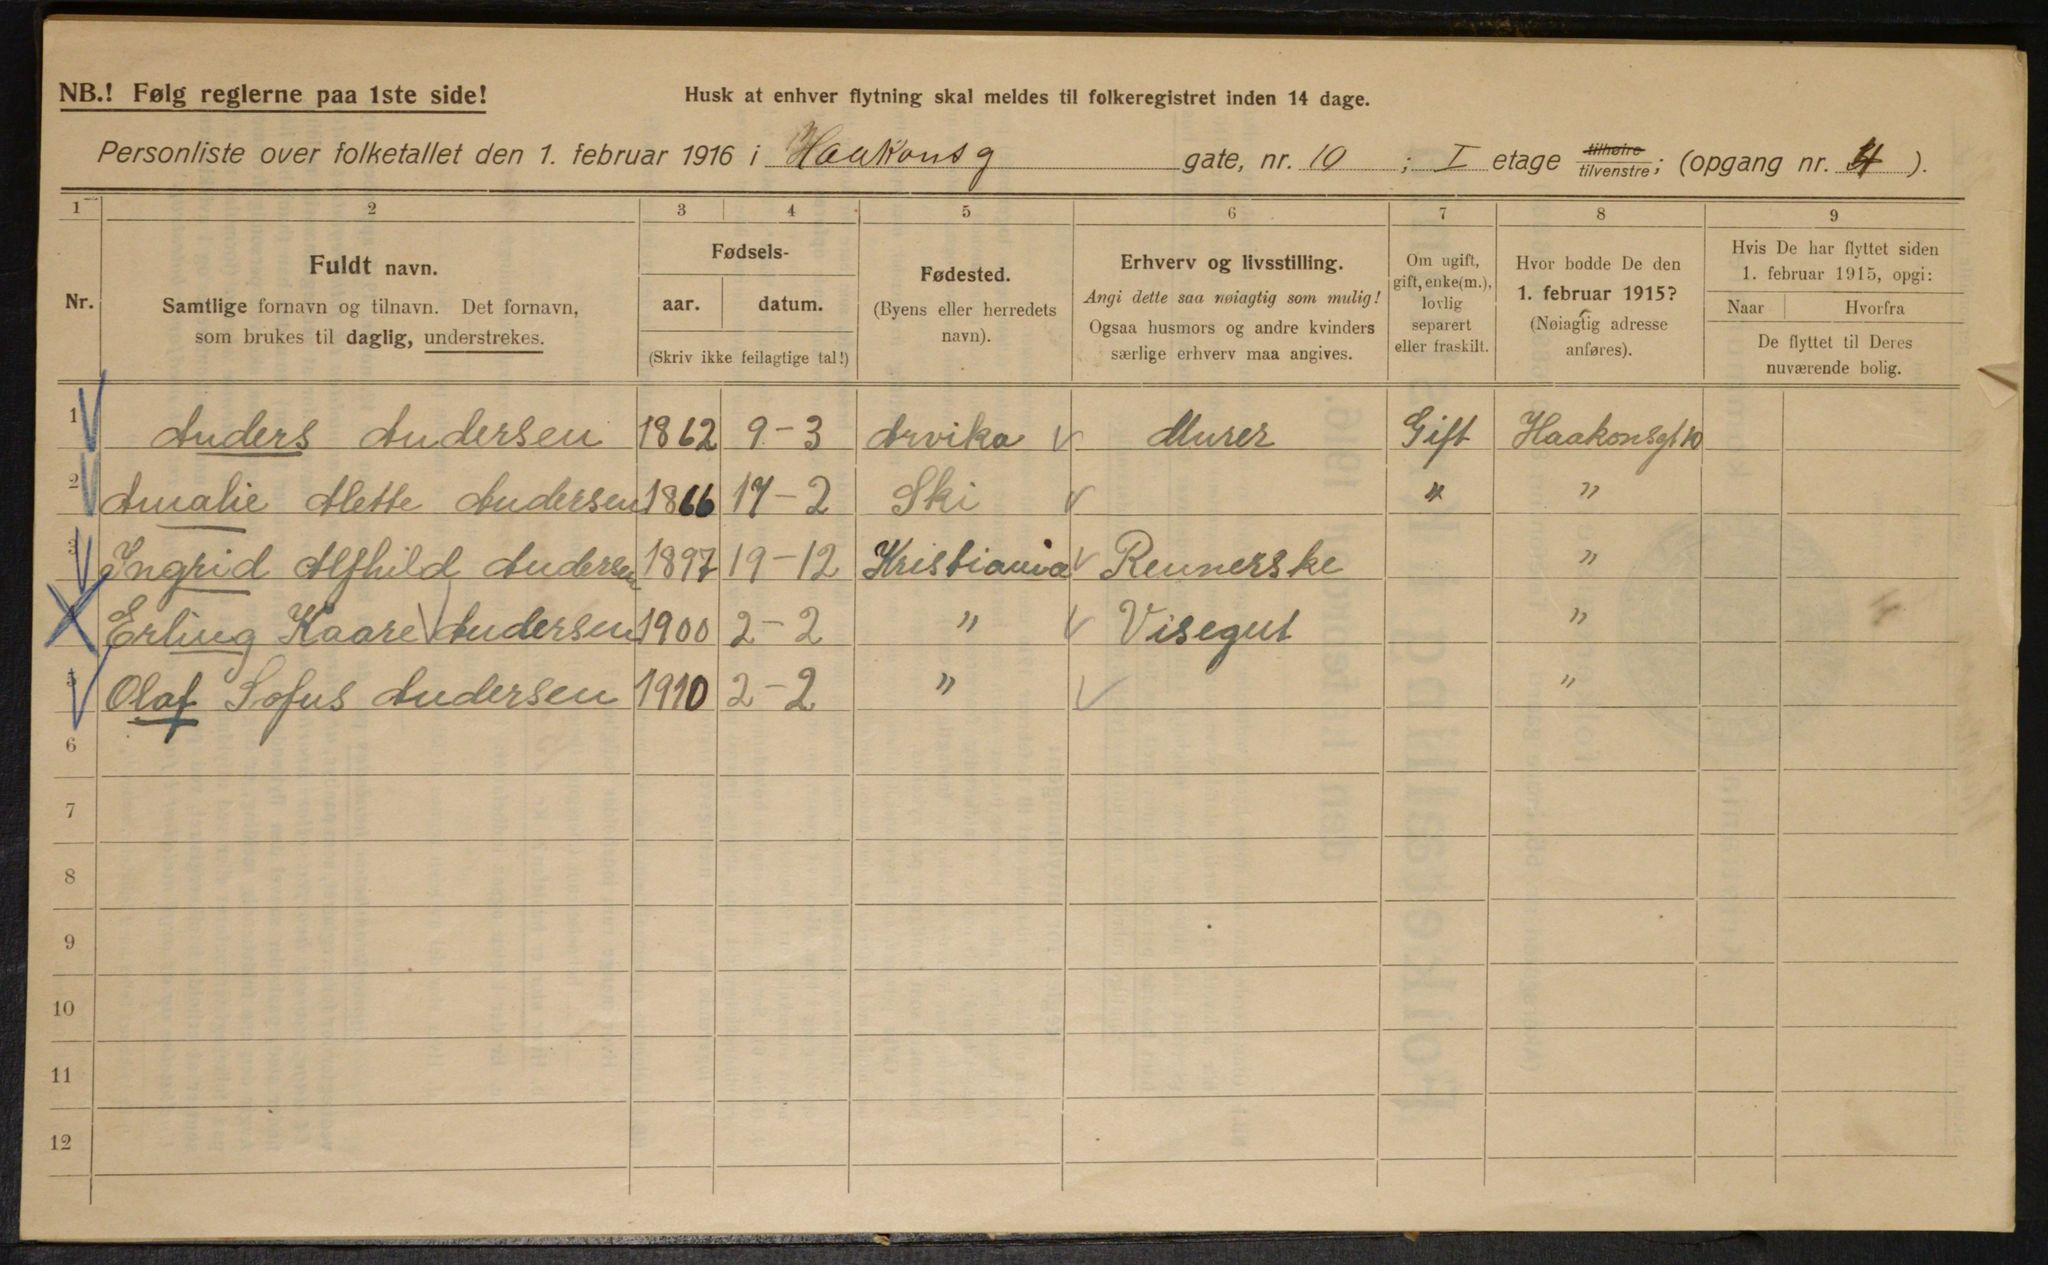 NB.! Følg reglerne paa 1ste side!
Husk at enhver flytning skal meldes til folkeregistret inden 14 dage.
Personliste over folketallet den 1. februar 1916 i Haakonsg gate, nr. 10 ; I etage tilhøire tilvenstre; (opgang nr. 4 ).
1 2 3 4 5 6 7 8 9
Nr.
Fuldt navn.
Samtlige fornavn og tilnavn. Det fornavn,
som brukes til daglig, understrekes.
Fødsels-
aar. datum.
(Skriv ikke feilagtige tal!)
Fødested.
(Byens eller herredets
navn).
Erhverv og livsstilling.
Angi dette saa nøiagtig som mulig!
Ogsaa husmors og andre kvinders
særlige erhverv maa angives.
Om ugift,
gift, enke(m.),
lovlig
separert
eller fraskilt.
Hvor bodde De den
1. februar 1915?
(Nøiagtig adresse
anføres).
Hvis De har flyttet siden
1. februar 1915, opgi:
Naar Hvorfra
De flyttet til Deres
nuværende bolig.
1 Anders Andersen 1862 9-3 Arvika Murer Gift Haakonsgt 10
2 Amalie Alette Andersen 1866 17-2 Ski " "
3 Ingrid Alfhild Andersen 1897 19-12 Kristiania Rennerske "
Erling Kaare Andersen 1900 2-2 " Visegut "
5 Olaf Sofus Andersen 1910 2-2 " "
6
7
8
9
10
11
12